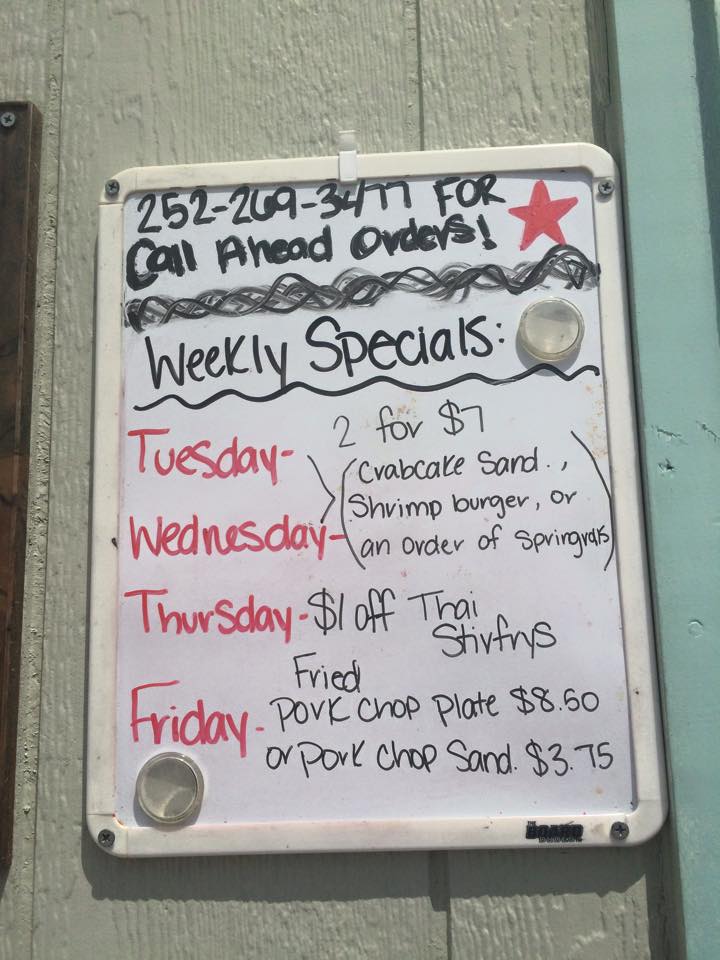 252-269-3477 FOR
Call Ahead Orders!
Weekly Specials:
Tuesday-
2 for $7
(Crabcake Sand.,
Shrimp burger, or
an order of Springrolls)
Wednesday-
Thursday- $1 off Thai
Stirfrys
Friday-
Fried
Pork Chop Plate $8.50
or Pork Chop Sand. $3.75
THE
BOARD